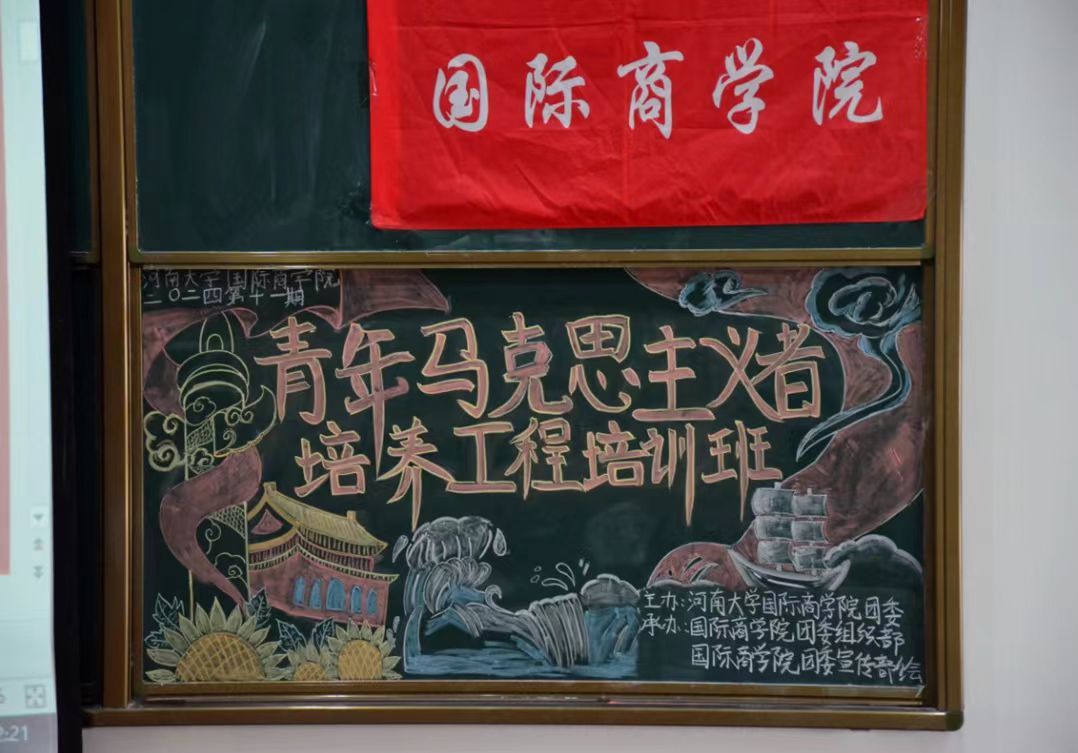 国际商学院
河南大学国际商学院
二〇二四第十一期
青年马克思主义者
培养工程培训班
主办:河南大学国际商学院团委
承办:国际商学院团委组织部
国际商学院团委宣传部绘
2:21